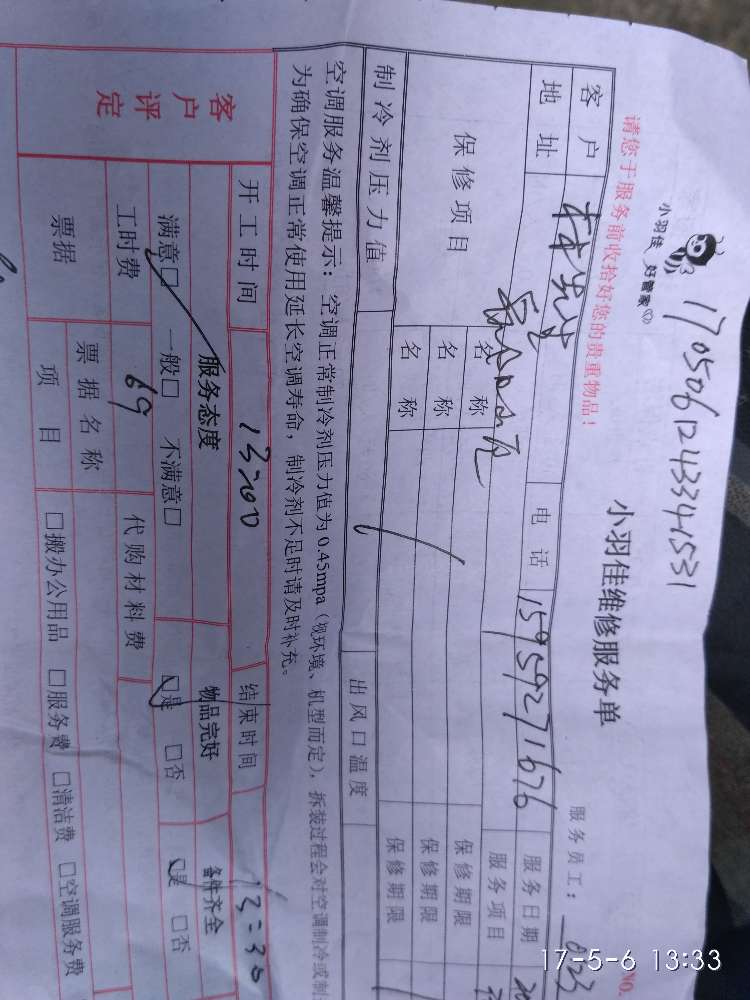 1705061243341531
小羽佳 好管家
小羽佳维修服务单
NO.
请您于服务前收拾好您的贵重物品!
服务员工: 023
客户
电话 15959271676 服务日期
地址
服务项目
保修项目
名称 保修期限
名称 保修期限
名称 保修期限
制冷剂压力值 出风口温度
空调服务温馨提示: 空调正常制冷剂压力值为0.45mpa(视环境、机型而定), 拆装过程会对空调制冷或制
为确保空调正常使用延长空调寿命, 制冷剂不足时请及时补充。
客户评定
开工时间 13:00 结束时间 13:30
服务态度 物品完好 备件齐全
满意□ 一般□ 不满意□ □是 □否 □是 □否
工时费 69 代购材料费
票据 票据名称
项目 □搬办公用品 □服务费 □清洁费 □空调服务费
17-5-6 13:33